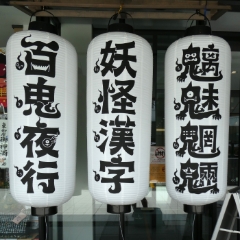 百鬼夜行
妖怪漢字
魑魅魍魎